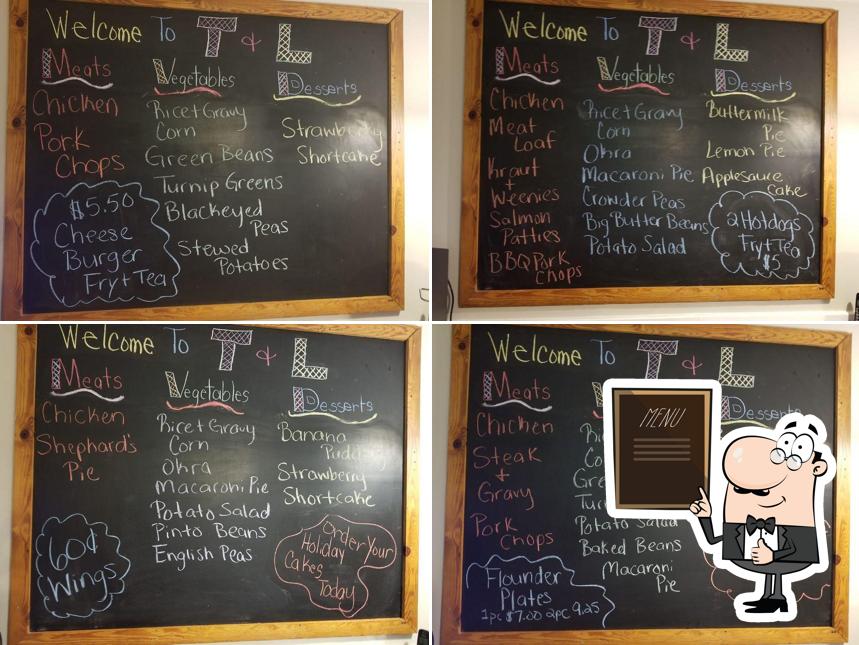 Welcome To T & L
Meats
Chicken
Pork
Chops
$5.50
Cheese
Burger
Fry + Tea
Vegetables
Rice + Gravy
Corn
Green Beans
Turnip Greens
Blackeyed
Peas
Stewed
Potatoes
Desserts
Strawberry
Shortcake
Welcome To T & L
Meats
Chicken
Meat
Loaf
Kraut
+
Weenies
Salmon
Patties
BBQ Pork
Chops
Vegetables
Rice + Gravy
Corn
Okra
Macaroni Pie
Crowder Peas
Big Butter Beans
Potato Salad
Desserts
Buttermilk
Pie
Lemon Pie
Applesauce
Cake
2 Hotdogs
Fry + Tea
$5
Welcome To T & L
Meats
Chicken
Shephard's
Pie
60¢
Wings
Vegetables
Rice + Gravy
Corn
Okra
Macaroni Pie
Potato Salad
Pinto Beans
English Peas
Desserts
Banana
Pudding
Strawberry
Shortcake
Order Your
Holiday
Cakes
Today
Welcome To T & L
Meats
Chicken
Steak
+
Gravy
Pork
Chops
Flounder
Plates
1pc $7.00 2pc 9.25
Potato Salad
Baked Beans
Macaroni
Pie
Desserts
MENU